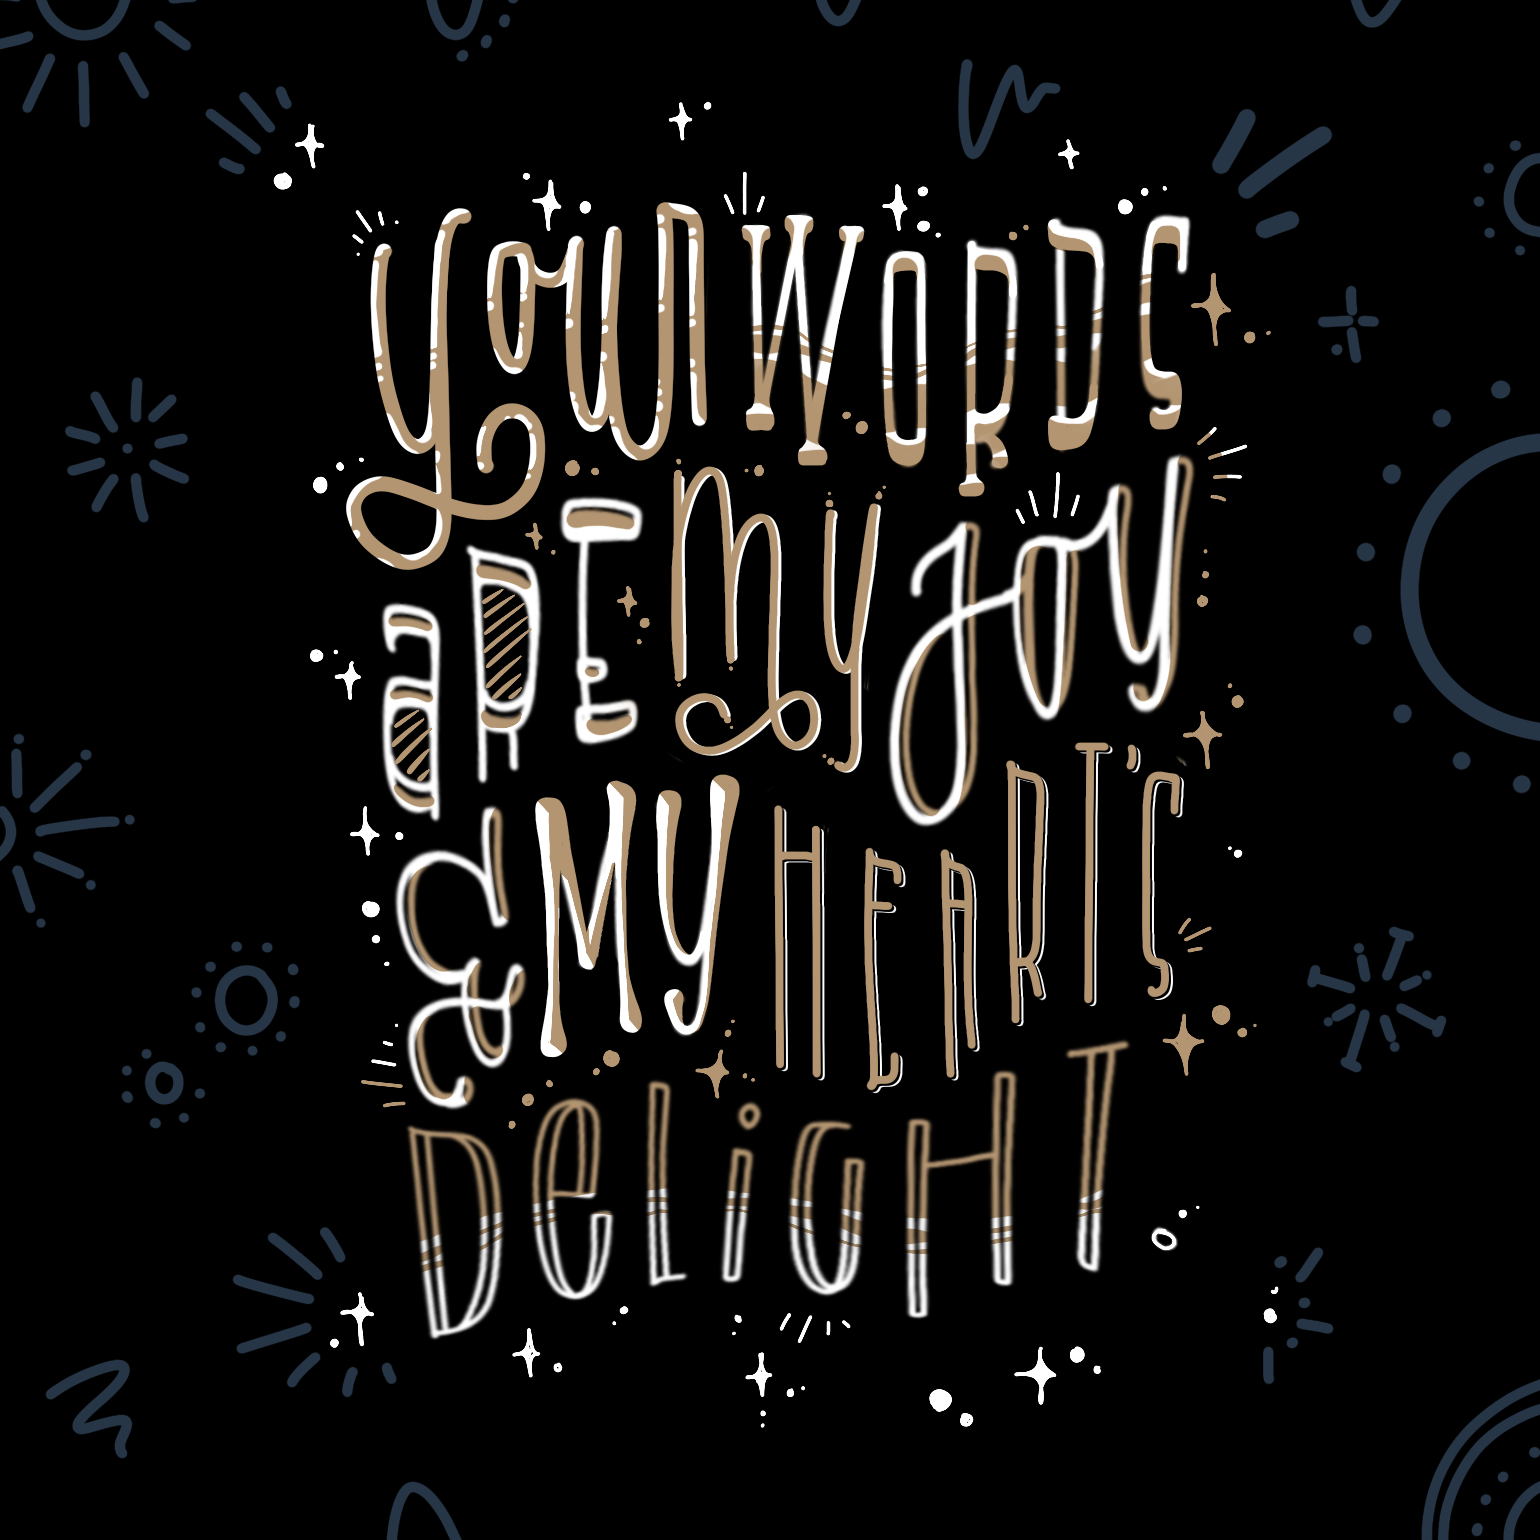 your WORDS
aRE my joy
& My HEARTS
DeLiGHT